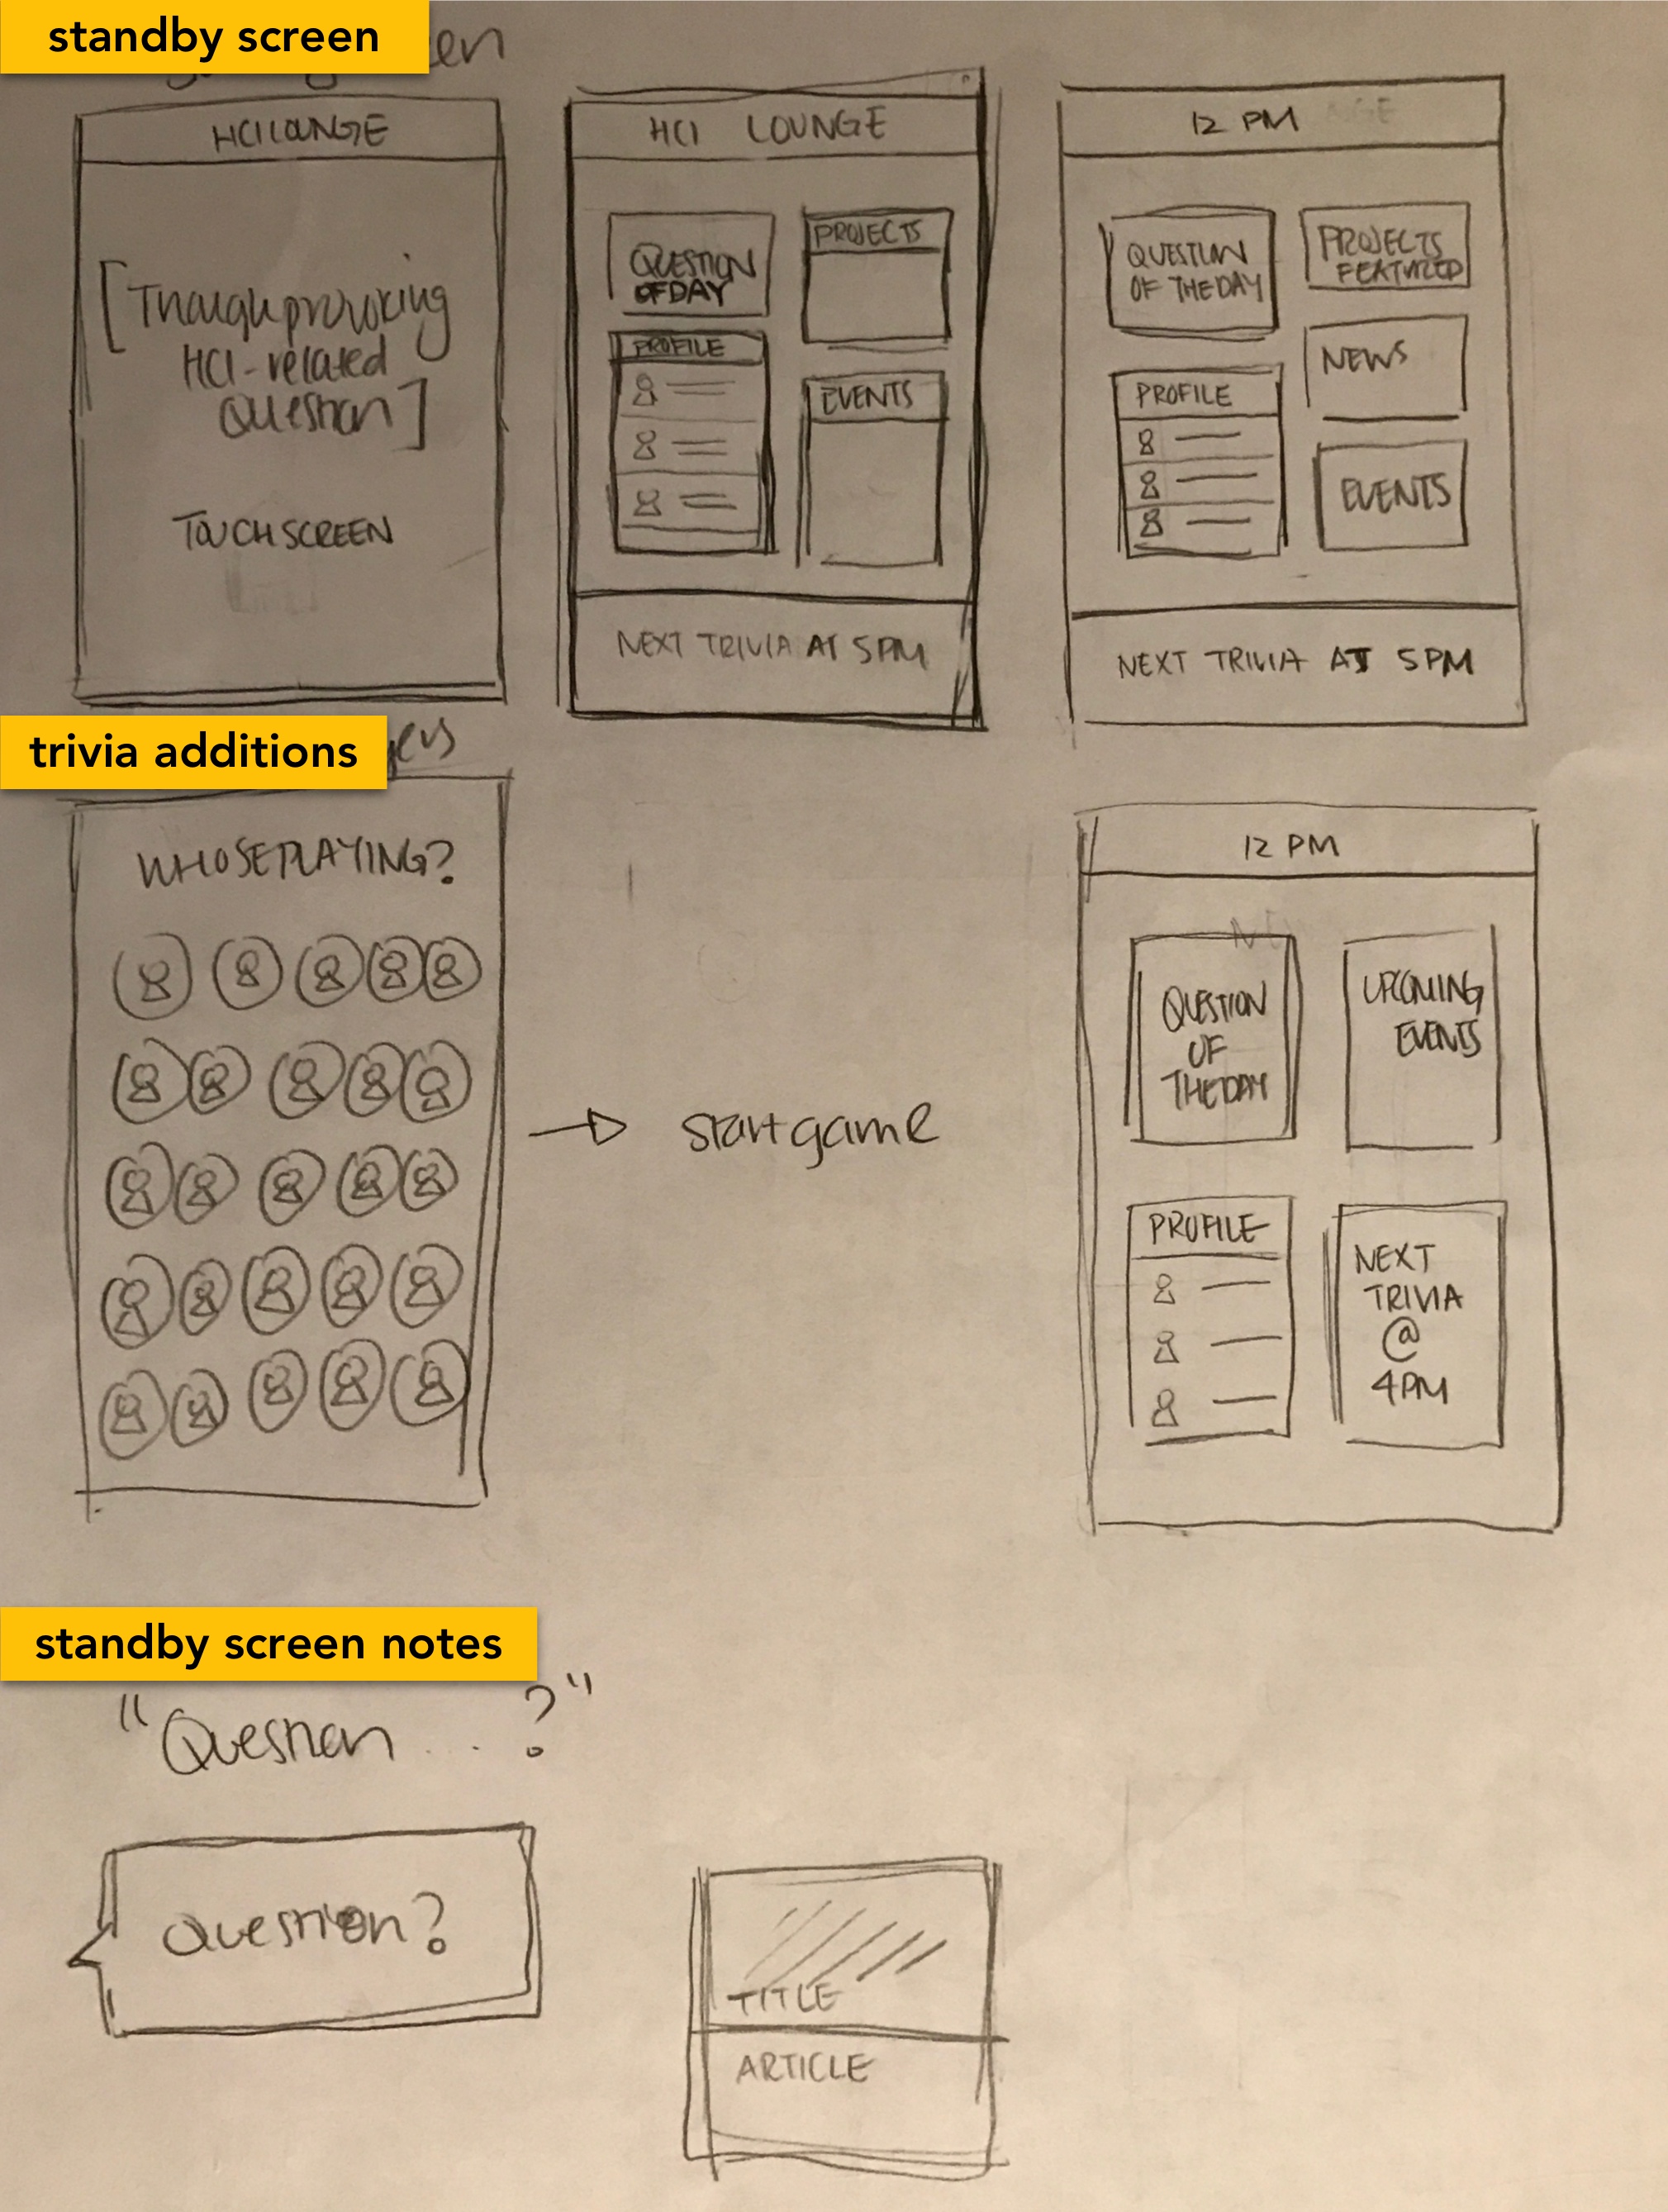 standby screen
en
HCI LOUNGE
[Thoughprovoking
HCI-related
Question]
TOUCHSCREEN
HCI LOUNGE
QUESTION
OF DAY
PROJECTS
PROFILE
EVENTS
NEXT TRIVIA AT 5PM
12 PM
QUESTION
OF THE DAY
PROJECTS
FEATURED
NEWS
PROFILE
EVENTS
NEXT TRIVIA AT 5PM
trivia additions
WHOSE PLAYING?
start game
12 PM
QUESTION
OF
THE DAY
UPCOMING
EVENTS
PROFILE
NEXT
TRIVIA
@
4PM
standby screen notes
"Question ... ?"
Question?
TITLE
ARTICLE